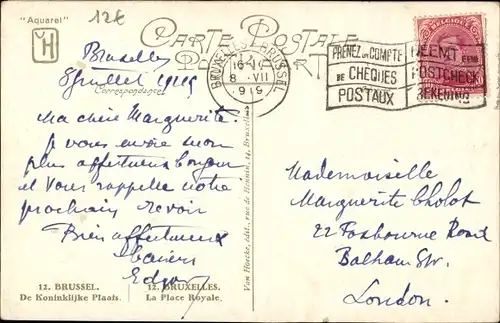 "Aquarel"
12€
CARTE POSTALE
POSTKAART
Correspondance
BRUXELLES 1 BRUSSEL
8 VII
1919
PRENEZ UN COMPTE
DE CHEQUES
POSTAUX
NEEMT EEN
POSTCHECK
REKENING
Bruxelles
8 juillet 1919
Ma chère Marguerite.
Je vous envoie mon
plus affectueux bonjour
et vous rappelle notre
prochain revoir
Bien affectueux
baisers
Edgar
Mademoiselle
Marguerite Cholot
22 Foxbourne Road
Balham Str.
London.
Van Hoecke, édit., rue de Hennin, 14, Bruxelles
12. BRUSSEL.
De Koninklijke Plaats.
12. BRUXELLES.
La Place Royale.